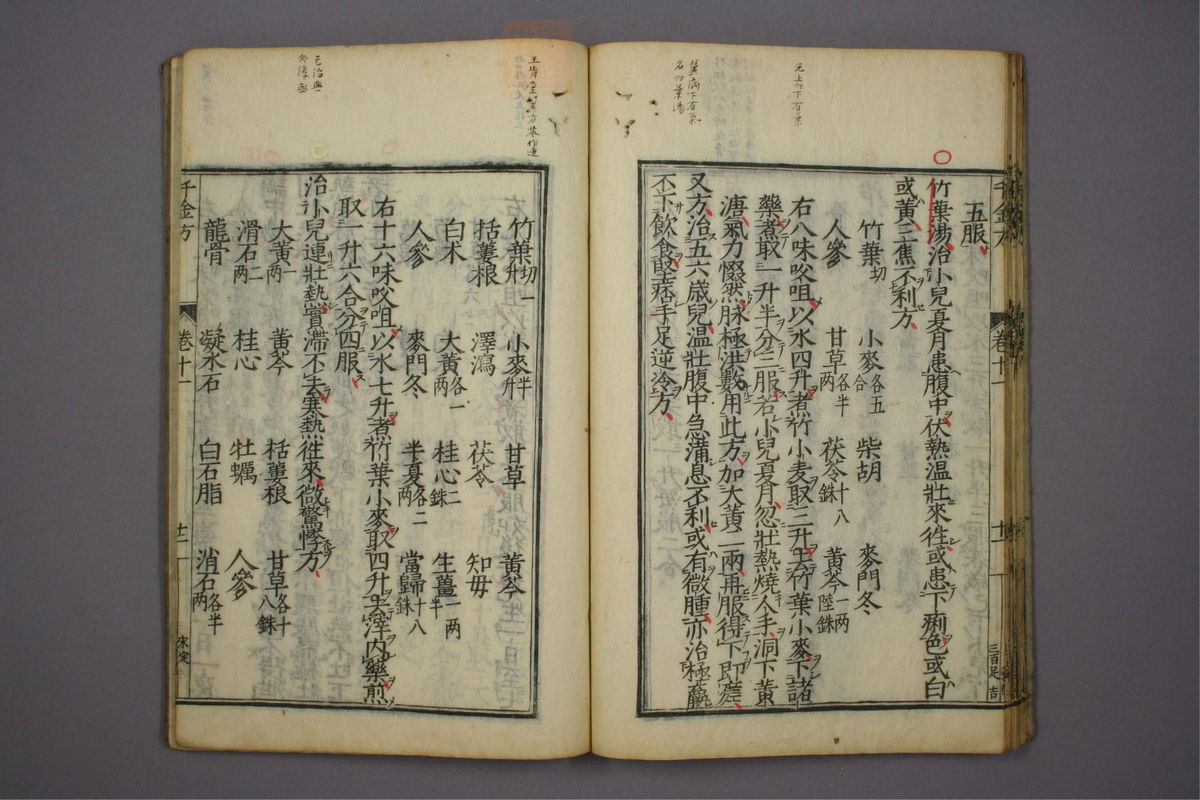 五服
竹葉湯治小兒夏月患腹中伏熱温壯來徃或患下痢色或白
或黄三焦不利方
竹葉切 小麥各五合 柴胡 麥門冬
人參 甘草各半两 茯苓十八銖 黄芩一两陸銖
右八味㕮咀以水四升煮竹小麦取三升去竹葉小麥下諸
藥煮取一升半分三服若小兒夏月忽壯熱燒人手洞下黄
溏氣力惙然脉極洪數用此方加大黄二兩再服得下即瘥
又方治五六歲兒温壯腹中急滿息不利或有微腫亦治極羸
不下飲食堅痞手足逆冷方
千金方 卷十一 十一
三百足吉
竹葉切一升 小麥半升 甘草 黄芩
栝蔞根 澤瀉 茯苓 知母
白术 大黄各一两 桂心二銖 生薑一两半
人參 麥門冬 半夏各二两 當歸十八銖
右十六味㕮咀以水七升煮竹葉小麥取四升去滓内藥煎
取一升六合分四服
治小兒連壯熱實滯不去寒熱徃來微驚悸方
大黄一两 黄芩 栝蔞根 甘草各十八銖
滑石二两 桂心 牡蠣 人參
龍骨 凝水石 白石脂 消石各半两
千金方 卷十一 十二
宋定